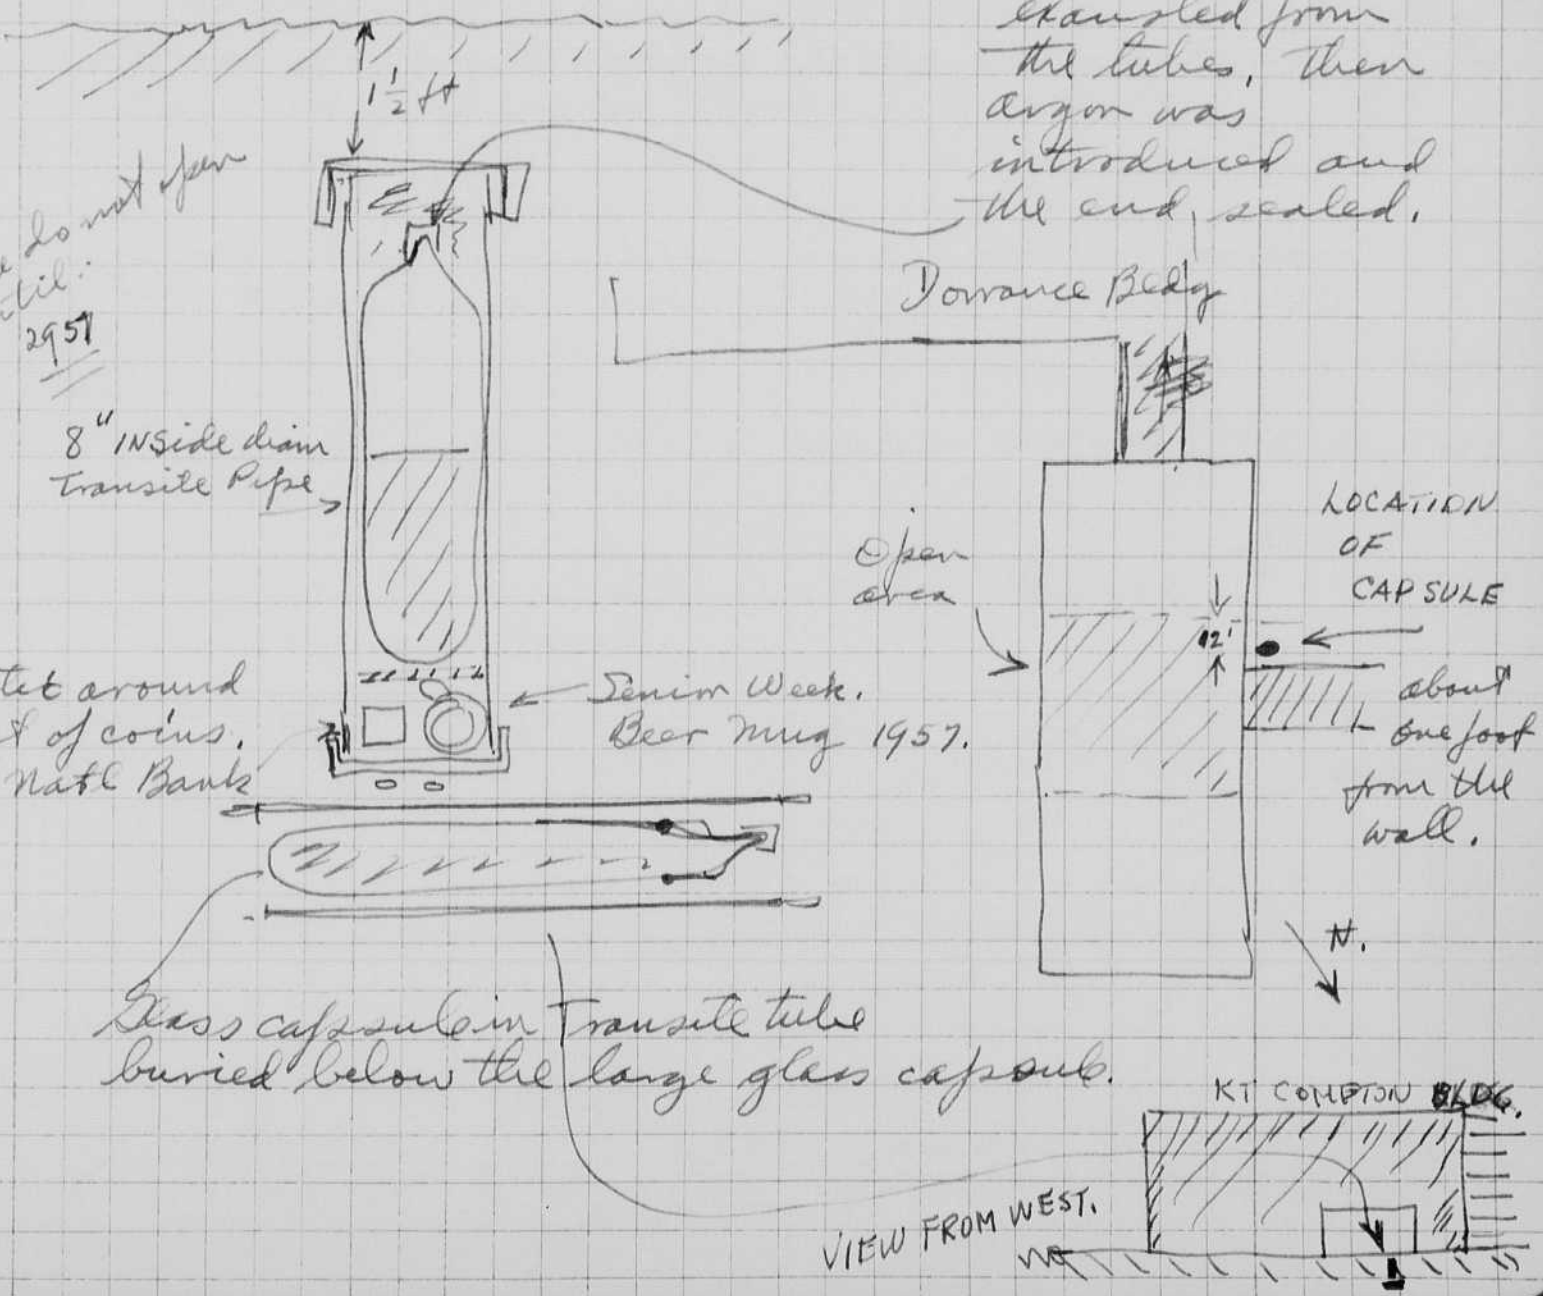 exausted from
the tubes, then
argon was
introduced and
the end, sealed.
1 1/2 ft
do not open
2957
Dorrance Bldg
8" INside diam
Transite Pipe
Open
area
LOCATION
OF
CAPSULE
12'
about
one foot
from the
wall.
around
of coins.
Nat'l Bank
Senior Week.
Beer Mug 1957.
N.
Glass capsule in Transite tube
buried below the large glass capsule.
KT COMPTON BLDG.
VIEW FROM WEST.